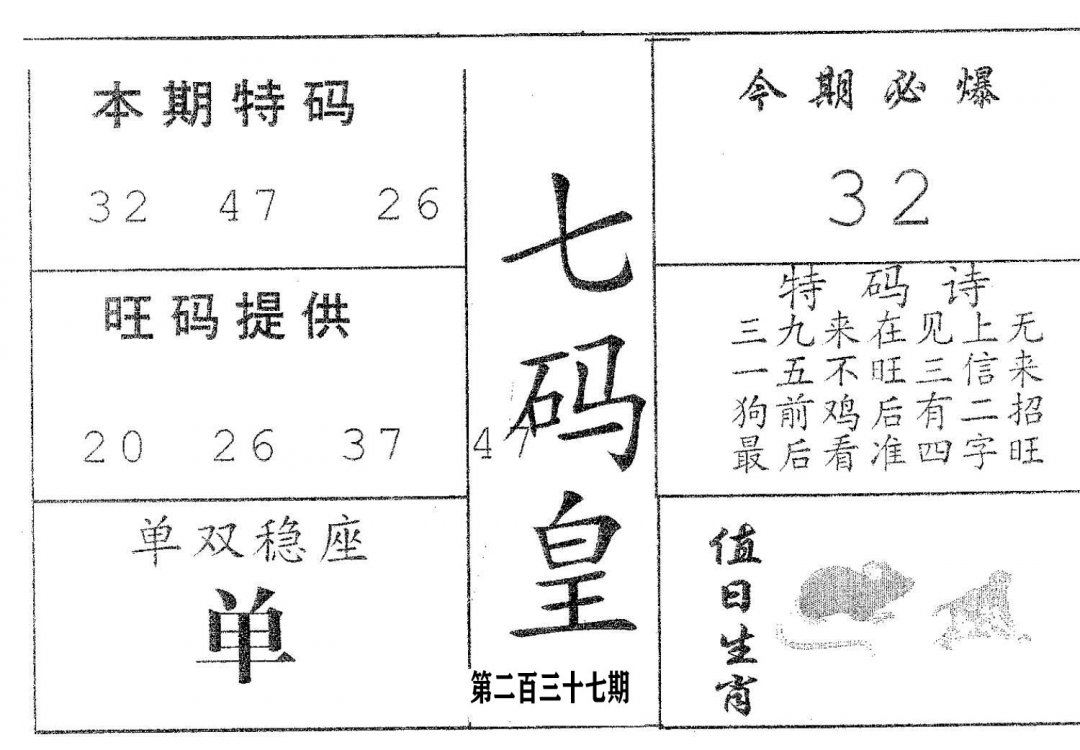 本期特码
32 47 26
旺码提供
20 26 37 47
单双稳座
单
七码皇
第二百三十七期
今期必爆
32
特码诗
三九来在见上无
一五不旺三信来
狗前鸡后有二招
最后看准四字旺
值日生肖